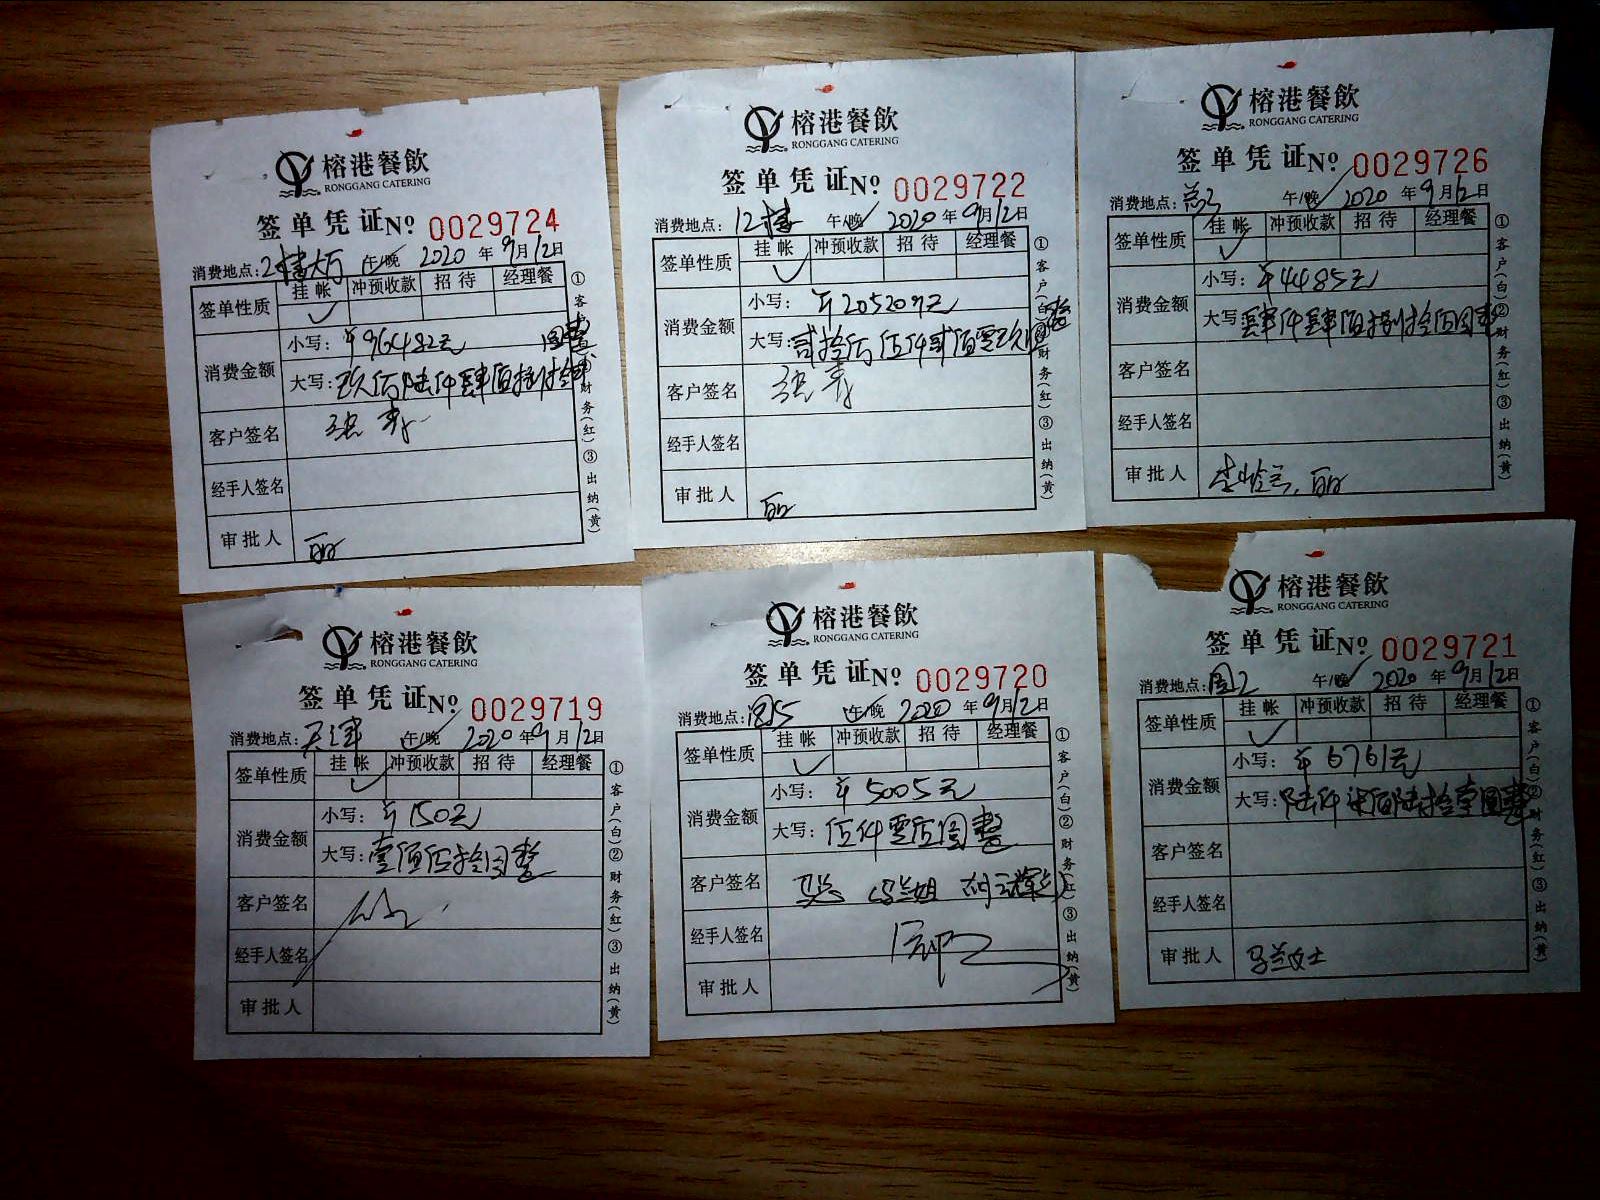 榕港餐飲
RONGGANG CATERING
签单凭证 Nº 0029724
消费地点：2楼大厅 午/晚 2020年9月12日
签单性质 挂帐 冲预收款 招待 经理餐
✓
消费金额 小写：¥96482元
大写：玖万陆仟肆佰捌拾 圆整
客户签名
经手人签名
审批人
①客户(白)②财务(红)③出纳(黄)
榕港餐飲
RONGGANG CATERING
签单凭证 Nº 0029722
消费地点：12楼 午/晚 2020年9月12日
签单性质 挂帐 冲预收款 招待 经理餐
✓
消费金额 小写：¥205209元
大写：贰拾万伍仟贰佰零玖圆整
客户签名
经手人签名
审批人
①客户(白)②财务(红)③出纳(黄)
榕港餐飲
RONGGANG CATERING
签单凭证 Nº 0029726
消费地点： 午/晚 2020年9月12日
签单性质 挂帐 冲预收款 招待 经理餐
✓
消费金额 小写：¥4485元
大写：肆仟肆佰捌拾伍圆整
客户签名
经手人签名
审批人
①客户(白)②财务(红)③出纳(黄)
榕港餐飲
RONGGANG CATERING
签单凭证 Nº 0029719
消费地点：天津 午/晚 2020年9月12日
签单性质 挂帐 冲预收款 招待 经理餐
✓
消费金额 小写：¥150元
大写：壹佰伍拾圆整
客户签名
经手人签名
审批人
①客户(白)②财务(红)③出纳(黄)
榕港餐飲
RONGGANG CATERING
签单凭证 Nº 0029720
消费地点： 午/晚 2020年9月12日
签单性质 挂帐 冲预收款 招待 经理餐
✓
消费金额 小写：¥5005元
大写：伍仟零伍圆整
客户签名
经手人签名
审批人
①客户(白)②财务(红)③出纳(黄)
榕港餐飲
RONGGANG CATERING
签单凭证 Nº 0029721
消费地点： 午/晚 2020年9月12日
签单性质 挂帐 冲预收款 招待 经理餐
✓
消费金额 小写：¥6761元
大写：陆仟柒佰陆拾壹圆整
客户签名
经手人签名
审批人 马兰女士
①客户(白)②财务(红)③出纳(黄)